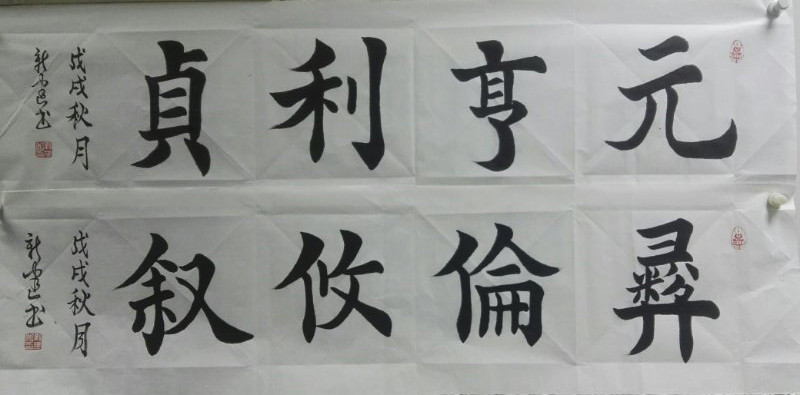 元亨利貞
戊戌秋月
彝倫攸叙
戊戌秋月